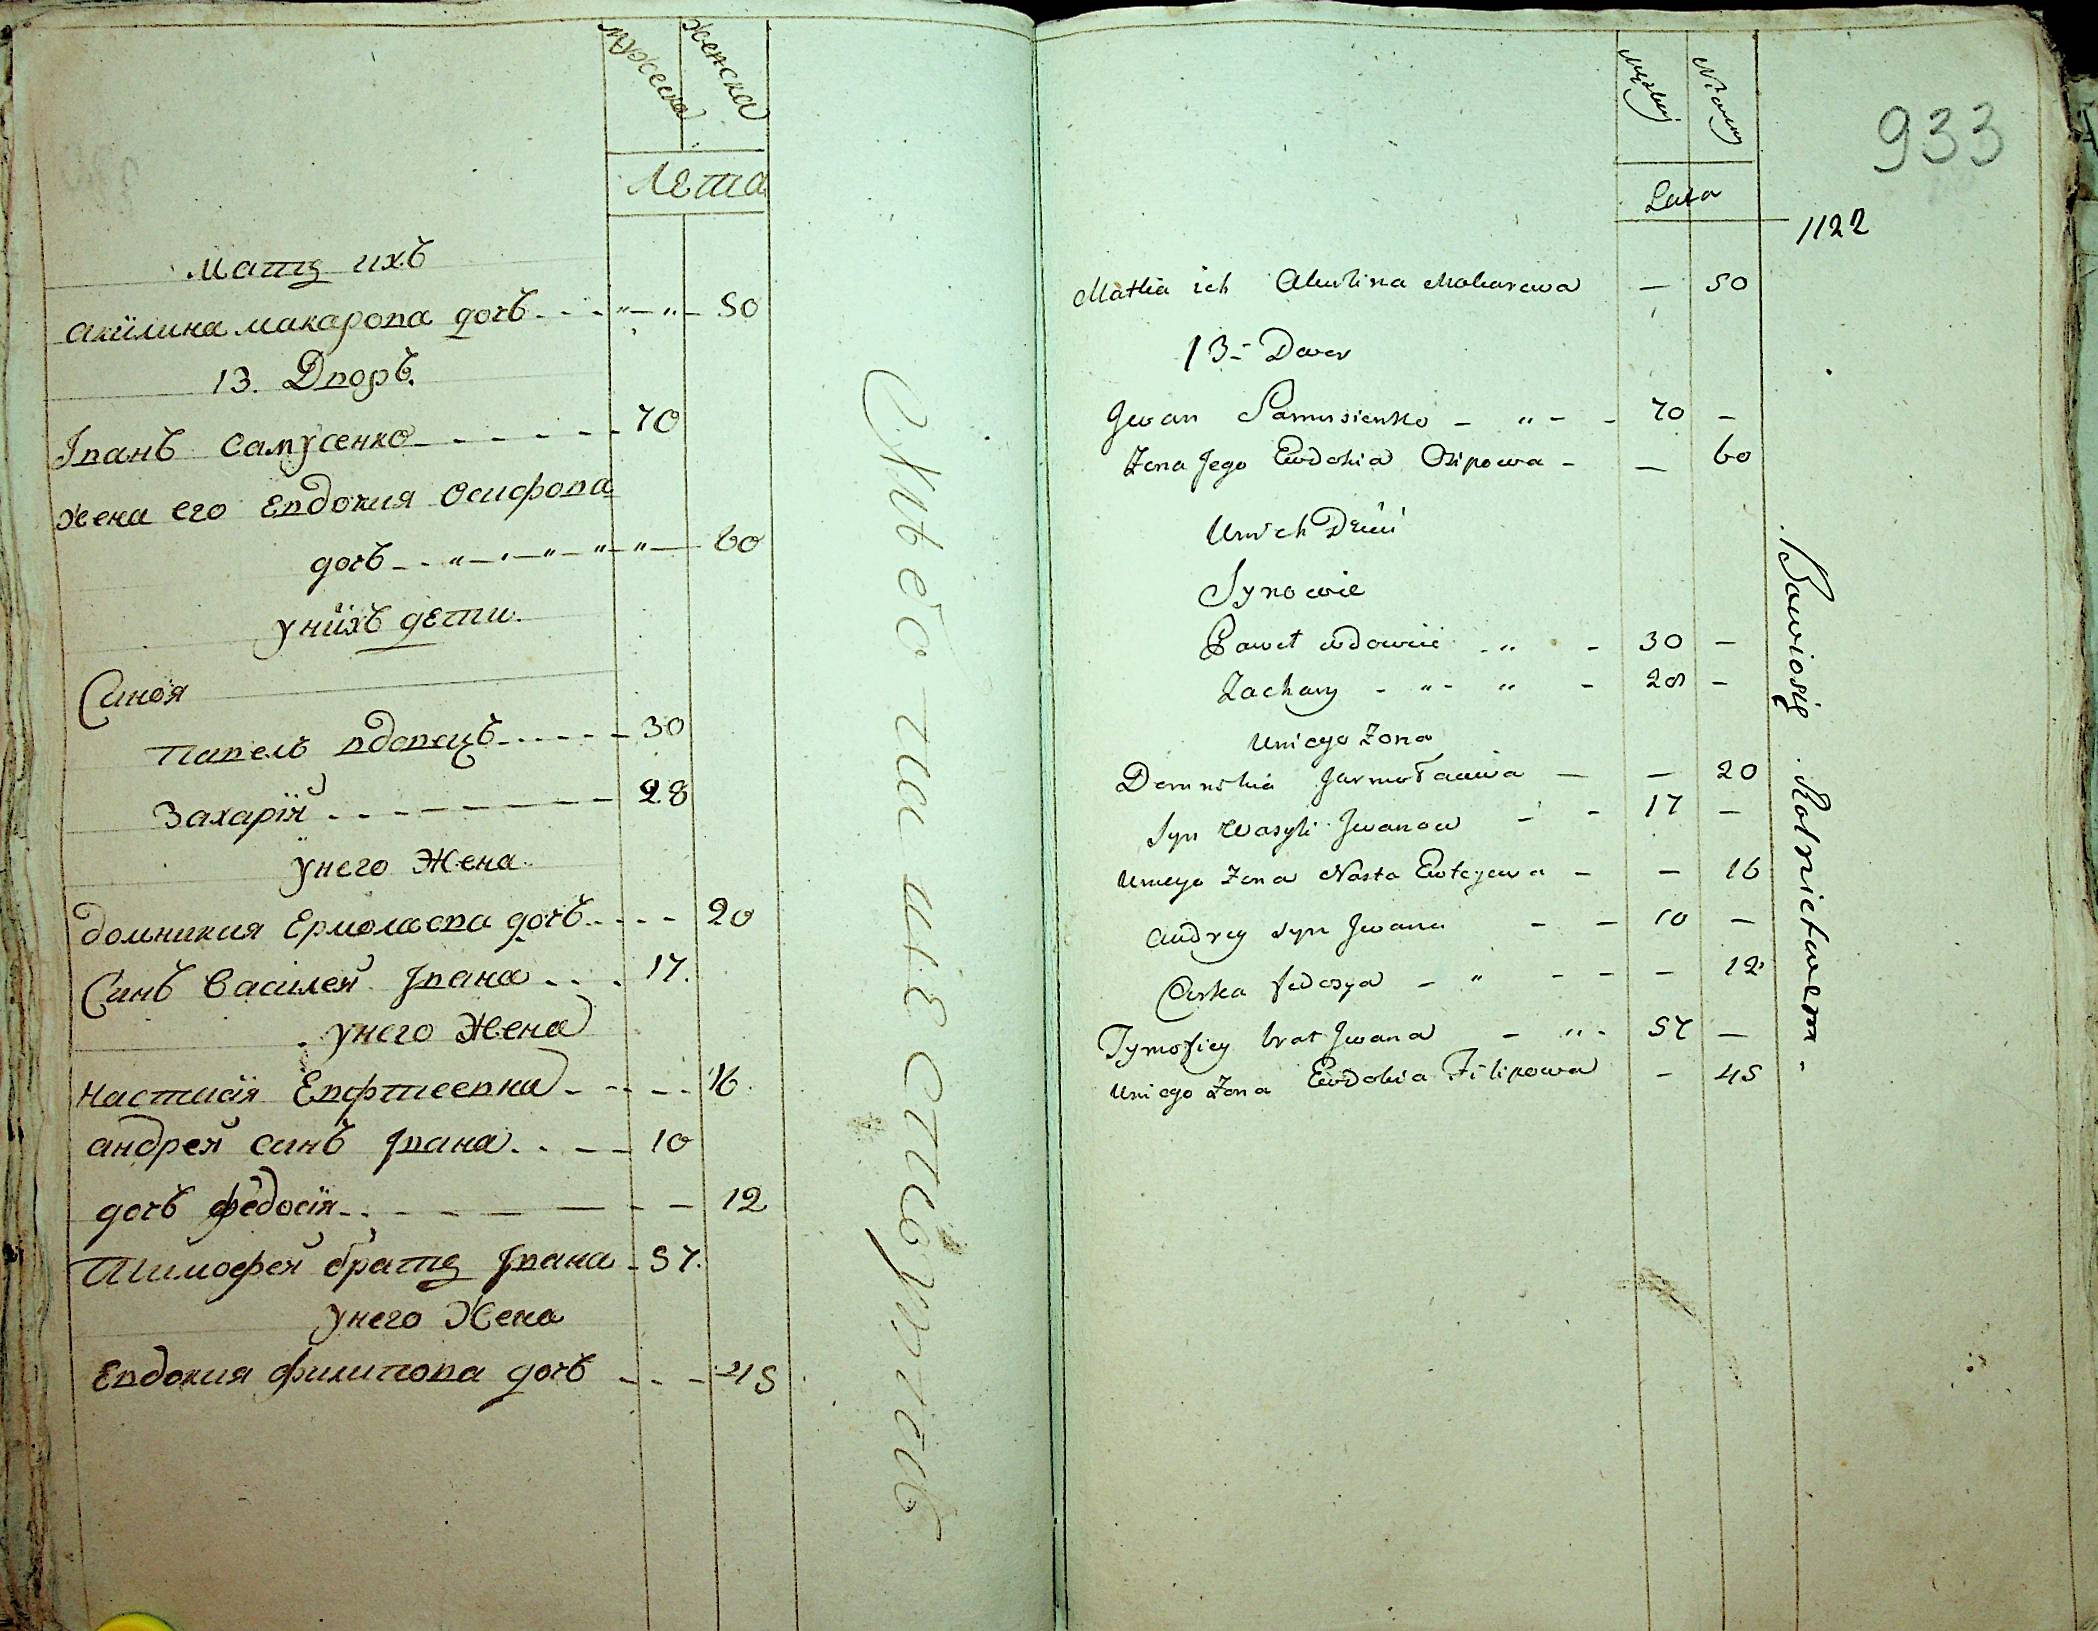 мужеска
женска
лета
Мать ихъ
акїлина макарова дочъ - - - 50
13. Дворъ.
Іванъ самусенко - - - - - - 70
жена его Евдокия Осифова
дочъ - - - - - 60
у нихъ дети.
Синоя
Павелъ вдовецъ - - - - - 30
Захарїй - - - - - - - 28
у него Жена
домникия Ермолаева дочъ - - - - 20
Синъ Василей Івана - - - 17.
у него Жена
Настасїя Евфтеевна - - - - 16.
андрей синъ Івана - - - - 10
дочъ федосїя - - - - - - - 12
Тимофей братъ Івана - 57.
у него Жена
Евдокия филипова дочъ - - - 45
933
Lata
1122
Matka ich Akulina Makarowa — 50
13 - Dwor
Jwan Samusienko - " - - 70 —
Zona Jego Ewdokia Osipowa - — 60
Unich Dzieci
Synowie
Paweł wdowiec - " - 30 —
Zachary - " - " - 28 —
Uniego Zona
Domnikia Jarmołaiewa — — 20
Syn Wasyli Jwanow - - 17 —
Uniego Zona Nasta Ewteyewa - — 16
Andrey syn Jwana - - 10 —
Curka fedosya - " - - — 12
Tymofiey brat Jwana - " - 57 —
Uniego Zona Ewdokia Filipowa - 45
Bawiosię Rolnictwem.